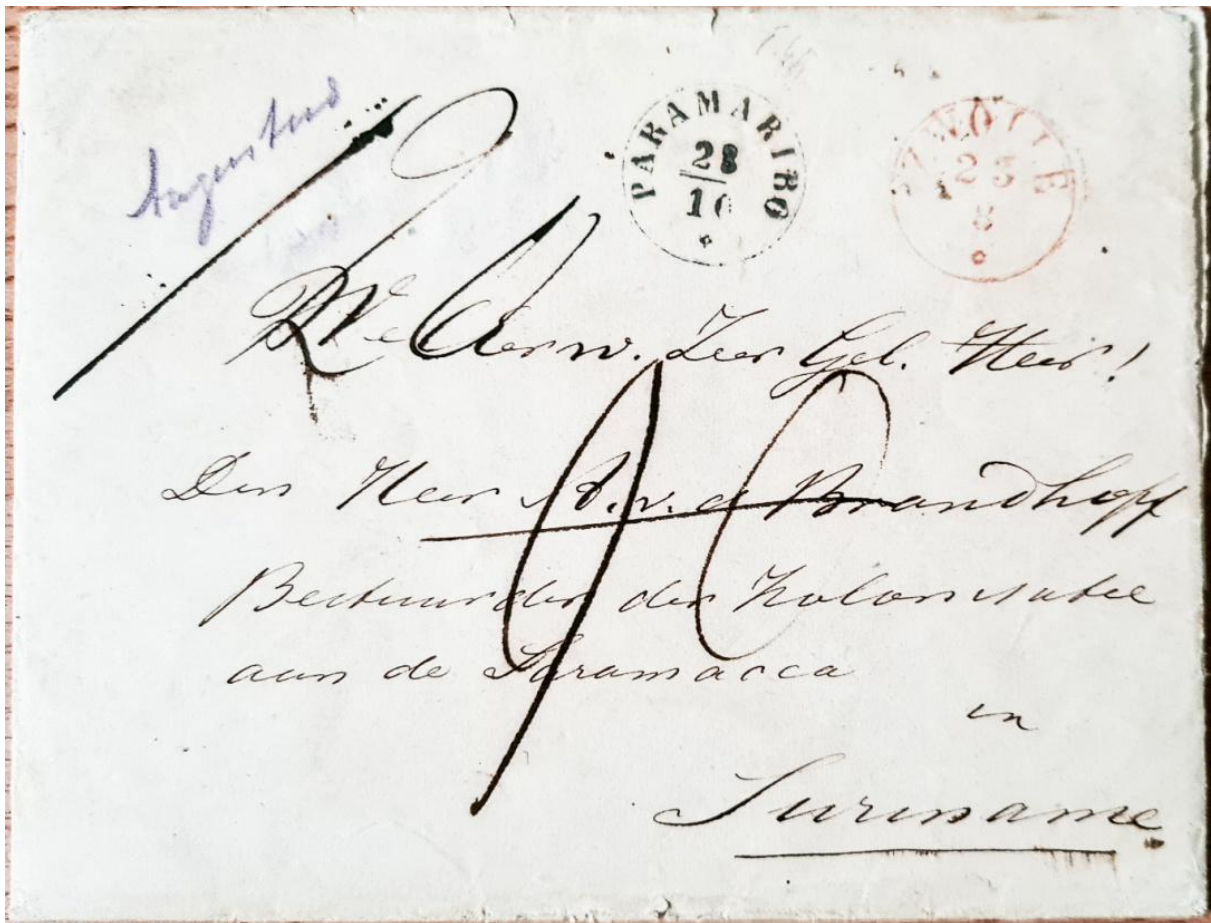 PARAMARIBO
28
10
ZWOLLE
23
8
WelEerw. Zeer Gel. Heer!
Den Heer A. v. d Brandhoff
Bestuurder der Kolonisatie
aan de Saramacca
in
Suriname